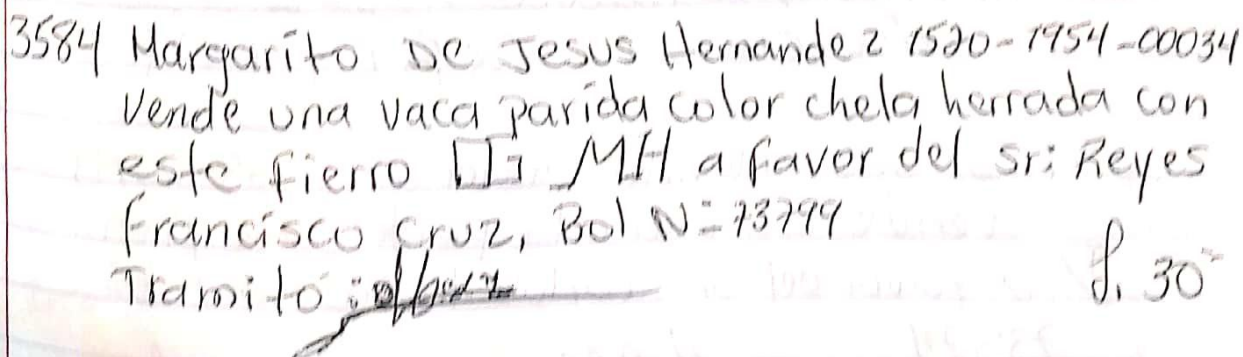 3584 Margarito De Jesus Hernandez 1520-1954-00034
Vende una vaca parida color chela herrada con
este fierro MH a favor del sr: Reyes
Francisco Cruz, Bol N= 73799
Tramito:
L. 30